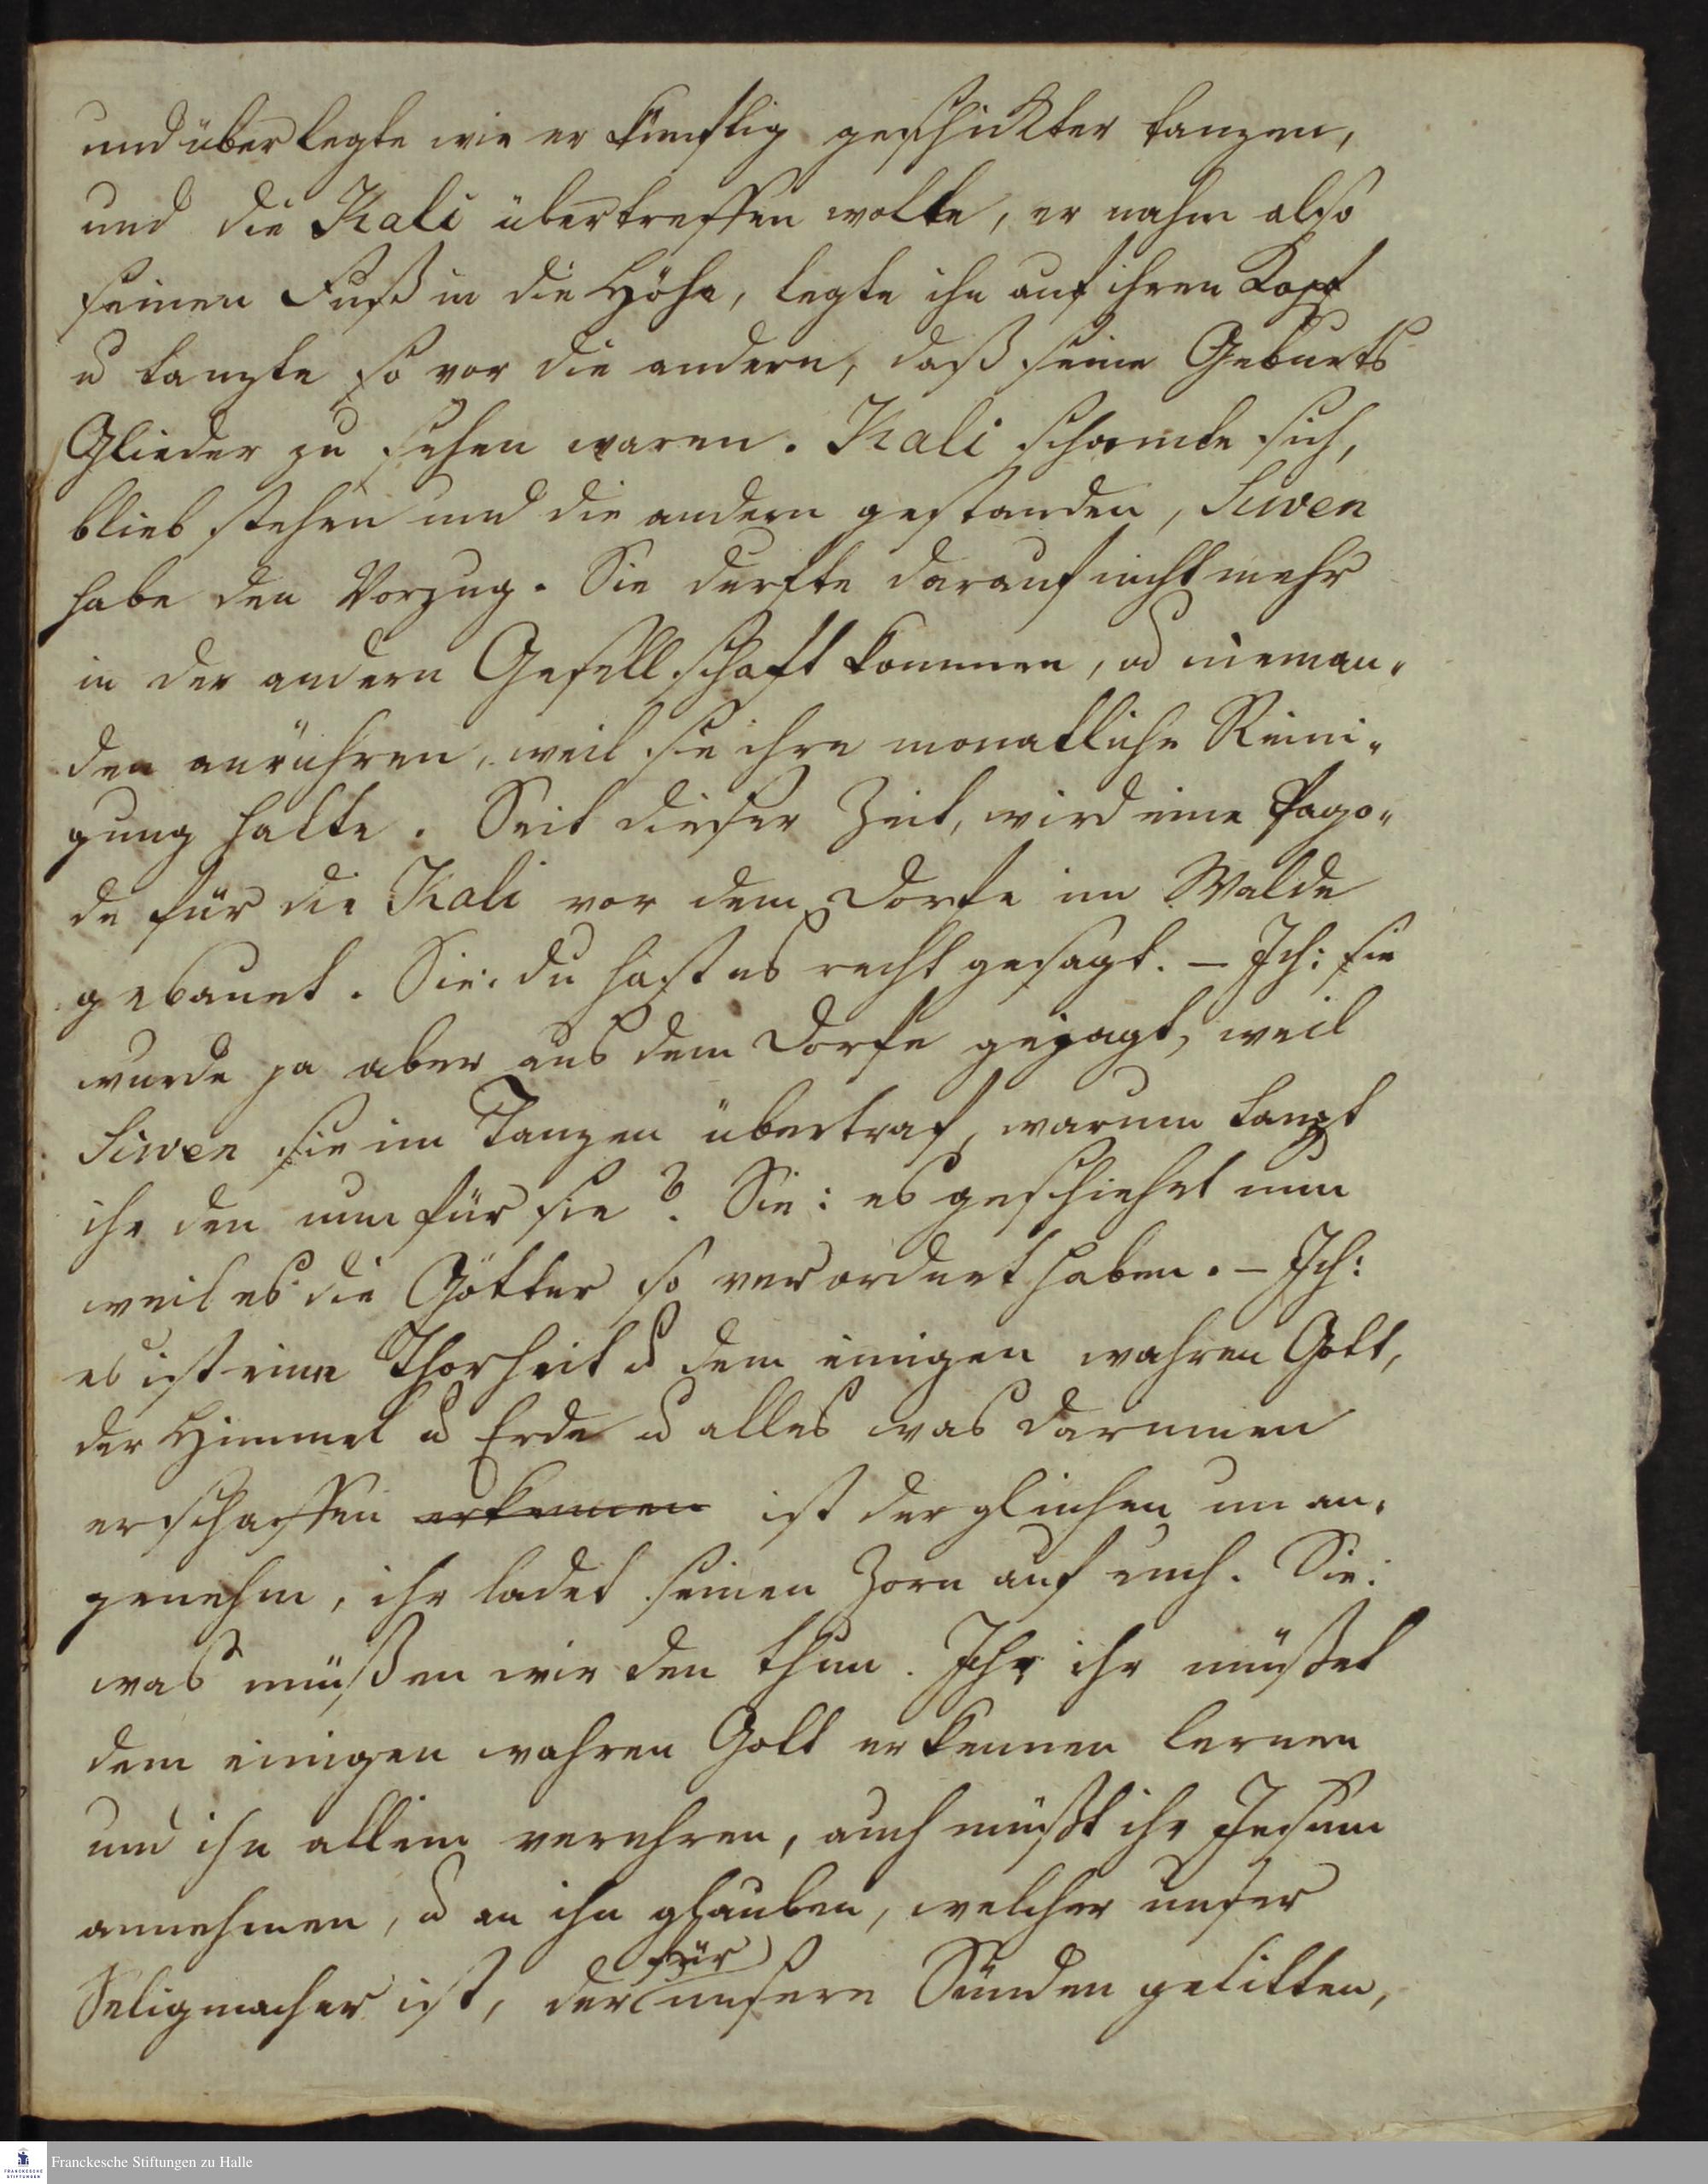 und überlegte wie er künftig geschikter tanzen,
und die Kali übertreffen wolte, er nahm also
seinen Fuß in die Höhe, legte ihn auf ihren Kopf
u tanzte so vor die andern, daß seine Geburts
Glieder zu sehen waren. Kali schämte sich,
blieb stehen und die andern gestanden, Siwen
habe den Vorzug. Sie durfte darauf nicht mehr
in der andern Gesellschaft kommen, u nieman„
den anrühren, weil sie ihre monatliche Reini„
gung hatte. Seit dieser Zeit, wird eine Pago„
de für die Kali vor dem Dorfe im Walde
gebauet. Sie: du hast es recht gesagt. – Ich: sie
wurde ja aber aus dem Dorfe gejagt, weil
Siwen sie im Tanzen übertraf, warum tanzt
ihr den nun für sie? Sie: es geschiehet nun
weil es die Götter so verordnet haben. – Ich:
es ist eine Thorheit u dem einigen wahren Gott,
der Himmel u Erde u alles was darinnen
erschaffen erkennen ist dergleichen unan„
genehm, ihr ladet seinen Zorn auf euch. Sie:
was müßen wir den thun. Ich ihr müßet
dem einigen wahren Gott erkennen lernen
und ihn allein verehren, auch müßt ihr Jesum
annehmen, u an ihn glauben, welcher unser
Seligmacher ist, der für unsere Sünden gelitten,
Franckesche Stiftungen zu Halle
FRANCKESCHE
STIFTUNGEN